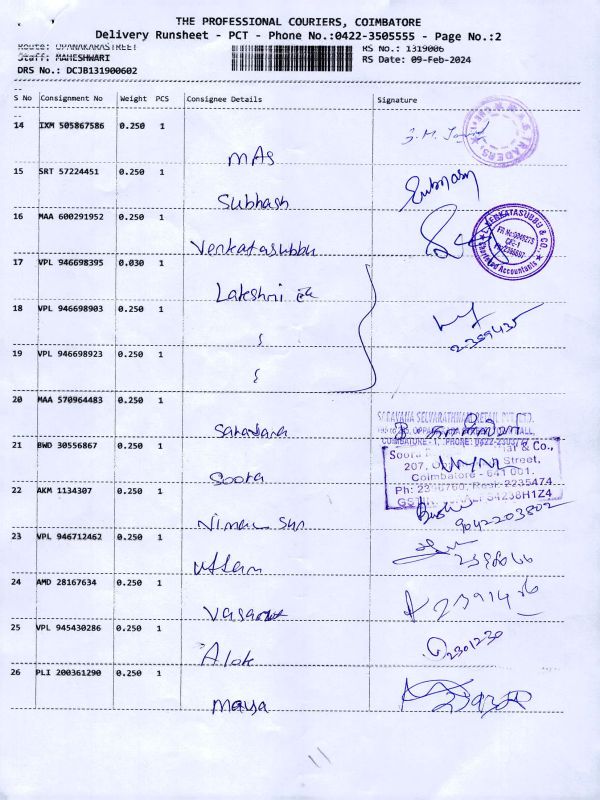 THE PROFESSIONAL COURIERS, COIMBATORE
Delivery Runsheet - PCT - Phone No.:0422-3505555 - Page No.:2
Route: UPANAKARASTREET
RS No.: 1319006
Staff: MAHESHWARI
RS Date: 09-Feb-2024
DRS No.: DCJB131900602
S No Consignment No Weight PCS Consignee Details Signature
14 IXM 505867586 0.250 1
MAS
15 SRT 57224451 0.250 1
Subhash
16 MAA 600291952 0.250 1
Venkatasubbu
VENKATASUBBU & CO.
Chartered Accountants
17 VPL 946698395 0.030 1
Lakshmi
18 VPL 946698903 0.250 1
2389435
19 VPL 946698923 0.250 1
20 MAA 570964483 0.250 1
Saradara
21 BWD 30556867 0.250 1
Soora
& Co.,
207, Street,
Coimbatore - 641 001.
22 AKM 1134307 0.250 1
9042203802
23 VPL 946712462 0.250 1
Uttam
24 AMD 28167634 0.250 1
2391426
25 VPL 945430286 0.250 1
Alok
2301230
26 PLI 200361290 0.250 1
Maya